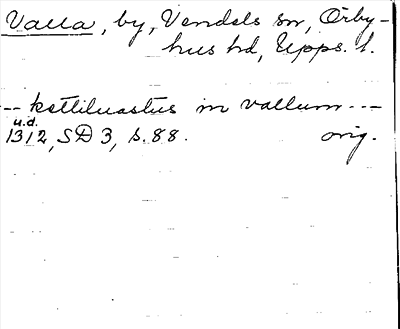 Valla, by, Vendels sn, Örby-
hus hd, Upps. l.
-- kettiluastus in vallum ---
u.d.
1312, SD 3, s. 88. orig.